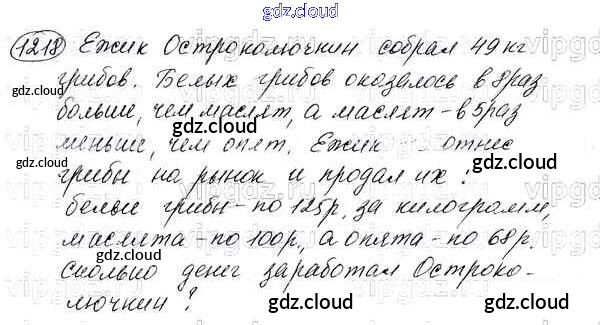 gdz.cloud
1218 Ежик Остроколючкин собрал 49 кг
грибов. Белых грибов оказалось в 8 раз
больше, чем маслят, а маслят - в 5 раз
меньше, чем опят. Ежик отнес
грибы на рынок и продал их:
белые грибы - по 125р. за килограмм,
маслята - по 100р., а опята - по 68р.
Сколько денег заработал Остроко-
лючкин?
gdz.cloud
gdz.cloud
gdz.cloud
gdz.cloud
gdz.cloud
gdz.cloud
gdz.cloud
gdz.cloud
gdz.cloud
gdz.cloud